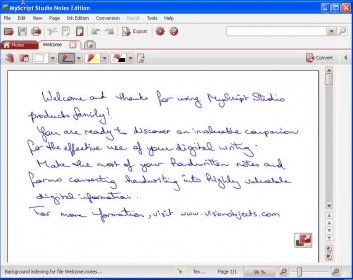 MyScript Studio Notes Edition
File Edit View Page Ink Edition Conversion Result Tools Help
Export
Home Welcome
Convert
Welcome and thanks for using MyScript Studio
products family!
You are ready to discover an invaluable companion
for the effective use of your digital writing.
Make the most of your handwritten notes and
forms converting handwriting into highly valuable
digital information.
For more formation, visit www.visionobjects.com
Background indexing for file Welcome.notes... Tex... Page 1/1 96 %